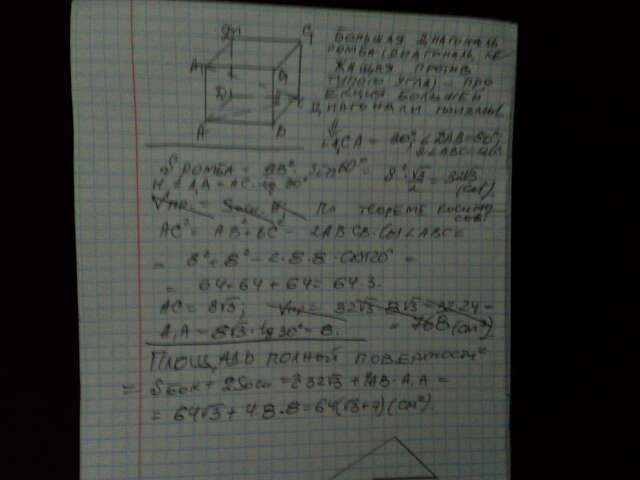 D₁ C₁
A₁ B₁
D C
A B
БОЛЬШАЯ ДИАГОНАЛЬ
РОМБА (ДИАГОНАЛЬ, ЛЕ-
ЖАЩАЯ ПРОТИВ
ТУПОГО УГЛА) – ПРО
ЕКЦИЯ БОЛЬШЕЙ
ДИАГОНАЛИ
⇓
S РОМБА = AB² · Sin 60° = 8² · √3/2 = 32√3 (см²)
H = A₁A = AC · tg 30°
По теореме косинусов
AC² = AB² + BC² − 2AB·CB·Cos∠ABC =
= 8² + 8² − 2·8·8·cos120° =
= 64 + 64 + 64 = 64·3.
AC = 8√3; = 32√3
A₁A = 8√3 · tg 30° = 8. = 768 (см³)
ПЛОЩАДЬ ПОЛНОЙ ПОВЕРХНОСТИ
= Sбок + 2Sосн = 2·32√3 + 4AB·A₁A =
= 64√3 + 4·8·8 = 64(√3+4)(см²).